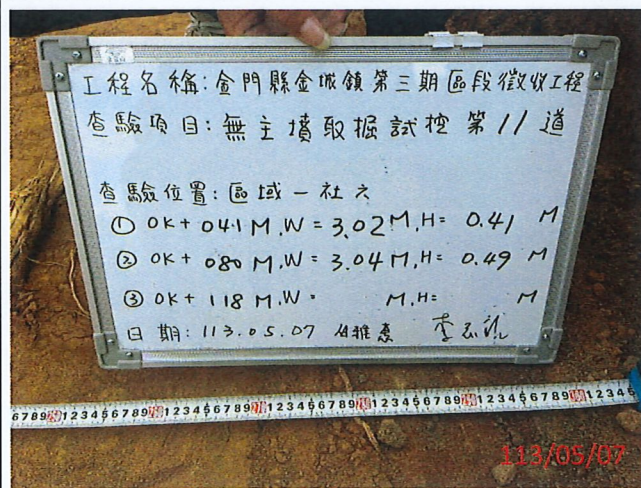 工程名稱:金門縣金城鎮第三期區段徵收工程
查驗項目:無主墳取掘試挖 第11道
查驗位置:區域一社六
① 0K+041M,W=3.02M,H=0.41 M
② 0K+080M,W=3.04M,H=0.49 M
③ 0K+118M,W= M,H= M
日期:113.05.07
6789 123456789 123456789 123456789 123456789 123456789 12345
113/05/07